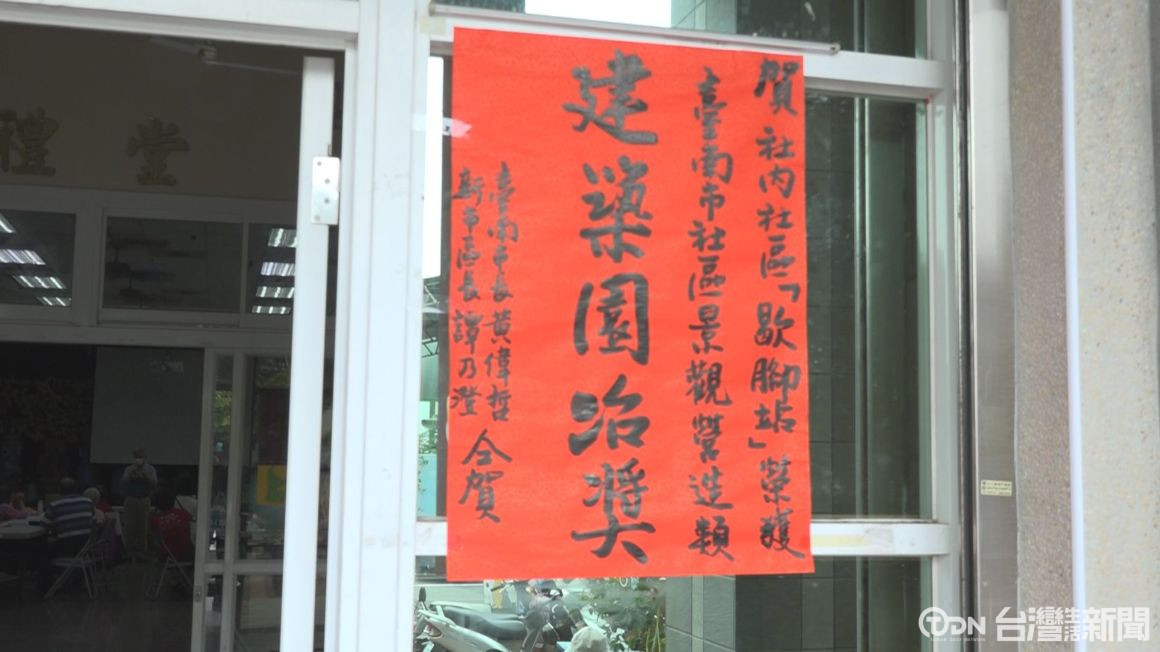 賀社內社區「歇腳站」榮獲
臺南市社區景觀營造類
建築園冶奬
臺南市長黃偉哲
新市區長譚乃澄 仝賀
禮堂
TDN 台灣生活新聞